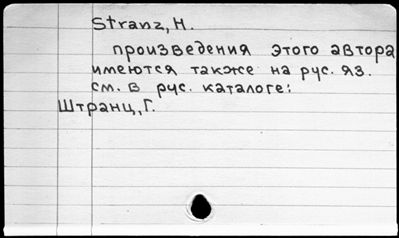 Stranz, H.
произведения этого автора
имеются также на рус. яз.
см. в рус. каталоге:
Штранц, Г.